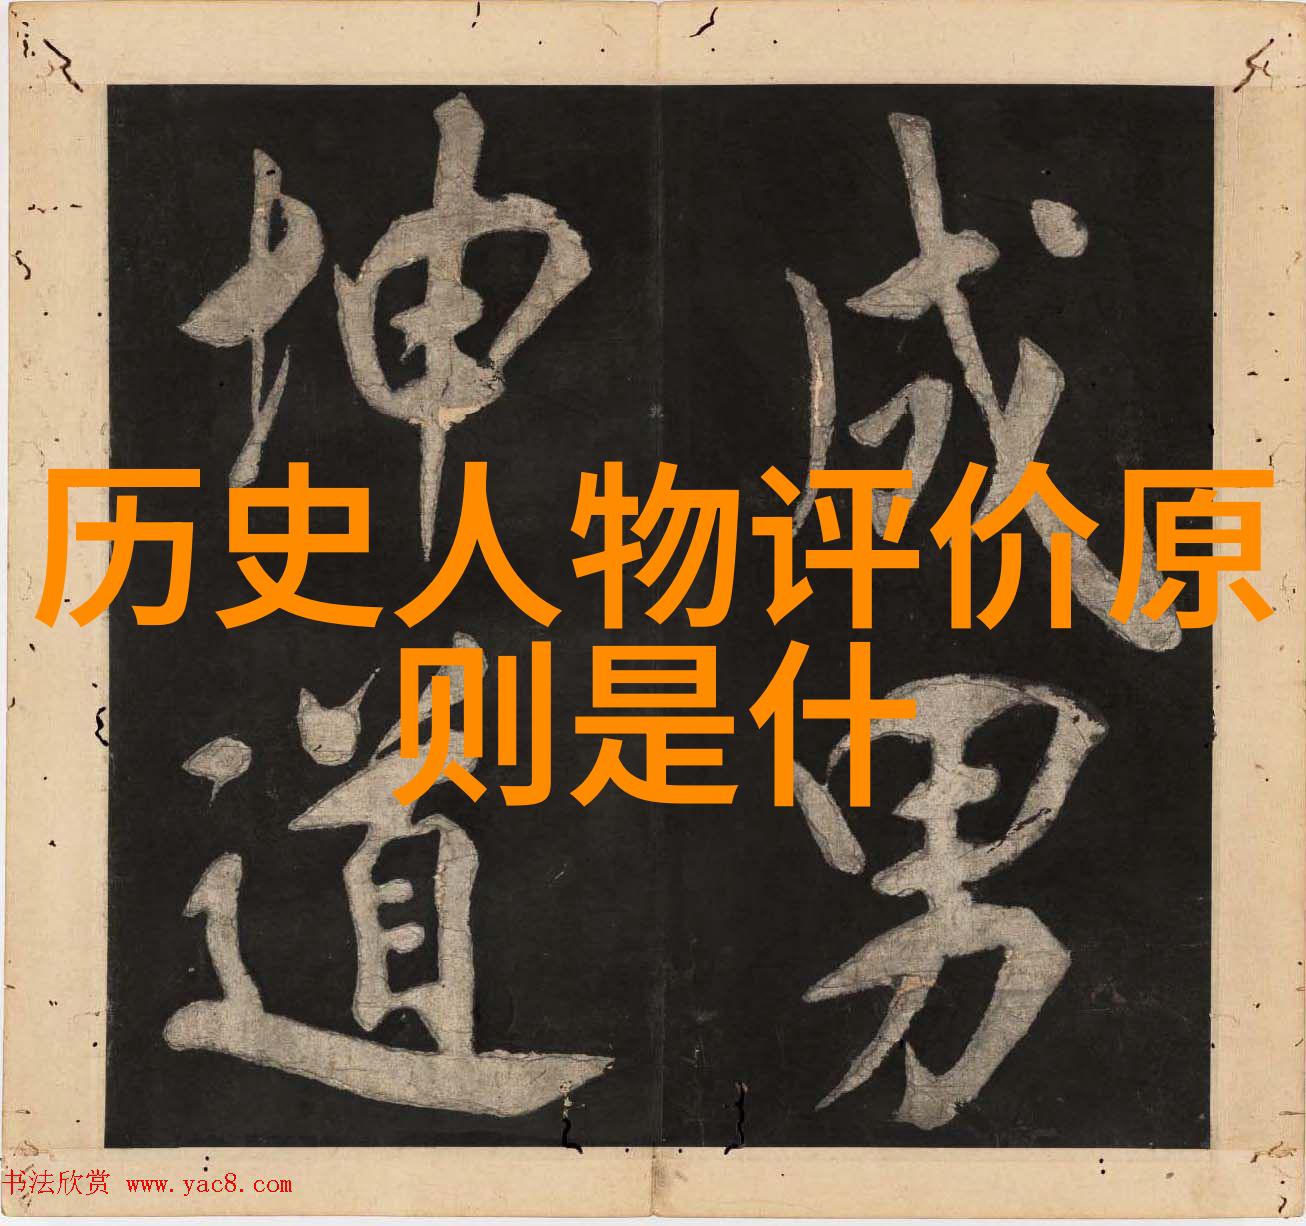 历史人物评价原
则是什
成男
坤道
书法欣赏 www.yac8.com